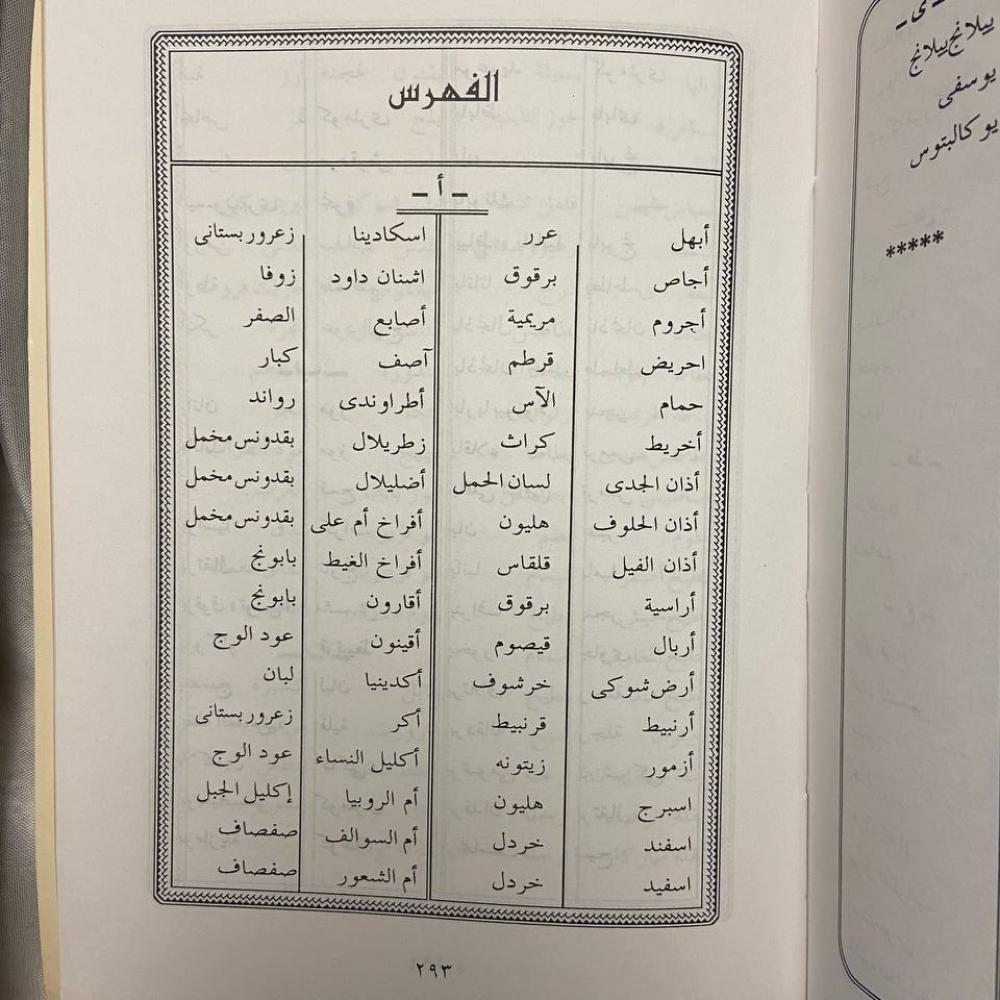 الفهرس
ـ أ ـ
أبهل عرر اسكادينا زعرور بستانى
أجاص برقوق اشنان داود زوفا
أجروم مريمية أصابع الصفر
احريض قرطم آصف كبار
حمام الآس أطراوندى رواند
أخريط كراث زطريلال بقدونس مخمل
أذان الجدى لسان الحمل أضليلال بقدونس مخمل
أذان الحلوف هليون أفراخ أم على بقدونس مخمل
أذان الفيل قلقاس أفراخ الغيط بابونج
أراسية برقوق أقارون بابونج
أربال قيصوم أقينون عود الوج
أرض شوكى خرشوف أكدينيا لبان
أرنبيط قرنبيط أكر زعرور بستانى
أزمور زيتونه أكليل النساء عود الوج
اسبرج هليون أم الروبيا إكليل الجبل
اسفند خردل أم السوالف صفصاف
اسفيد خردل أم الشعور صفصاف
٢٩٣
ـ ى ـ
ييلانج ييلانج
يوسفى
يوكالبتوس
*****